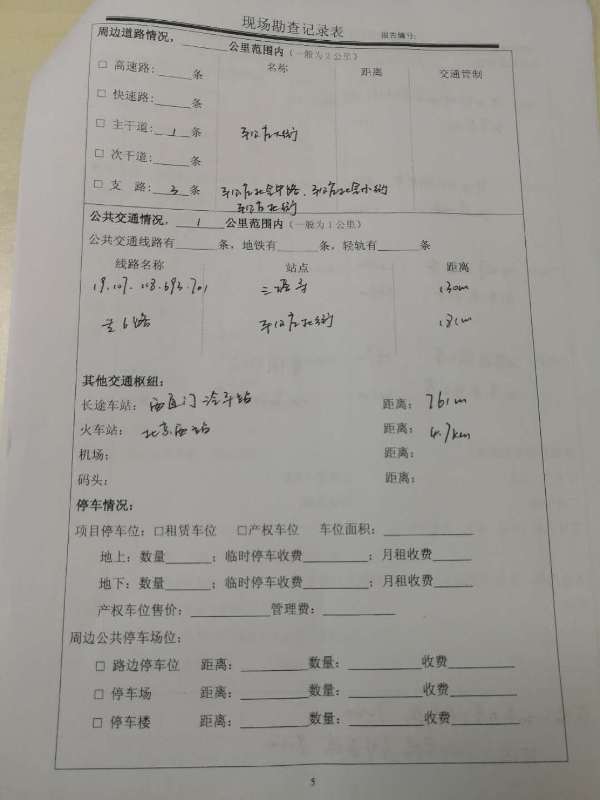 现场勘查记录表 报告编号:
周边道路情况，______公里范围内（一般为2公里）
□ 高速路:_____条 名称 距离 交通管制
□ 快速路:_____条
□ 主干道:__1__条 车公庄大街
□ 次干道:_____条
□ 支 路:__3__条 车公庄北里中路、车公庄北里小街
车公庄北街
公共交通情况，__1__公里范围内（一般为1公里）
公共交通线路有______条，地铁有______条，轻轨有______条
线路名称 站点 距离
19.107.118.693.701 三塔寺 130m
车公庄北街 181m
其他交通枢纽：
长途车站： 西直门 距离： 761m
火车站： 北京西站 距离： 4.7km
机场： 距离：
码头： 距离：
停车情况：
项目停车位：□租赁车位 □产权车位 车位面积：____________
地上：数量______；临时停车收费_________；月租收费_____
地下：数量______；临时停车收费_________；月租收费_____
产权车位售价：__________管理费：__________
周边公共停车场位：
□ 路边停车位 距离：_________数量：__________收费_________
□ 停车场 距离：_________数量：__________收费_________
□ 停车楼 距离：_________数量：__________收费_________
5